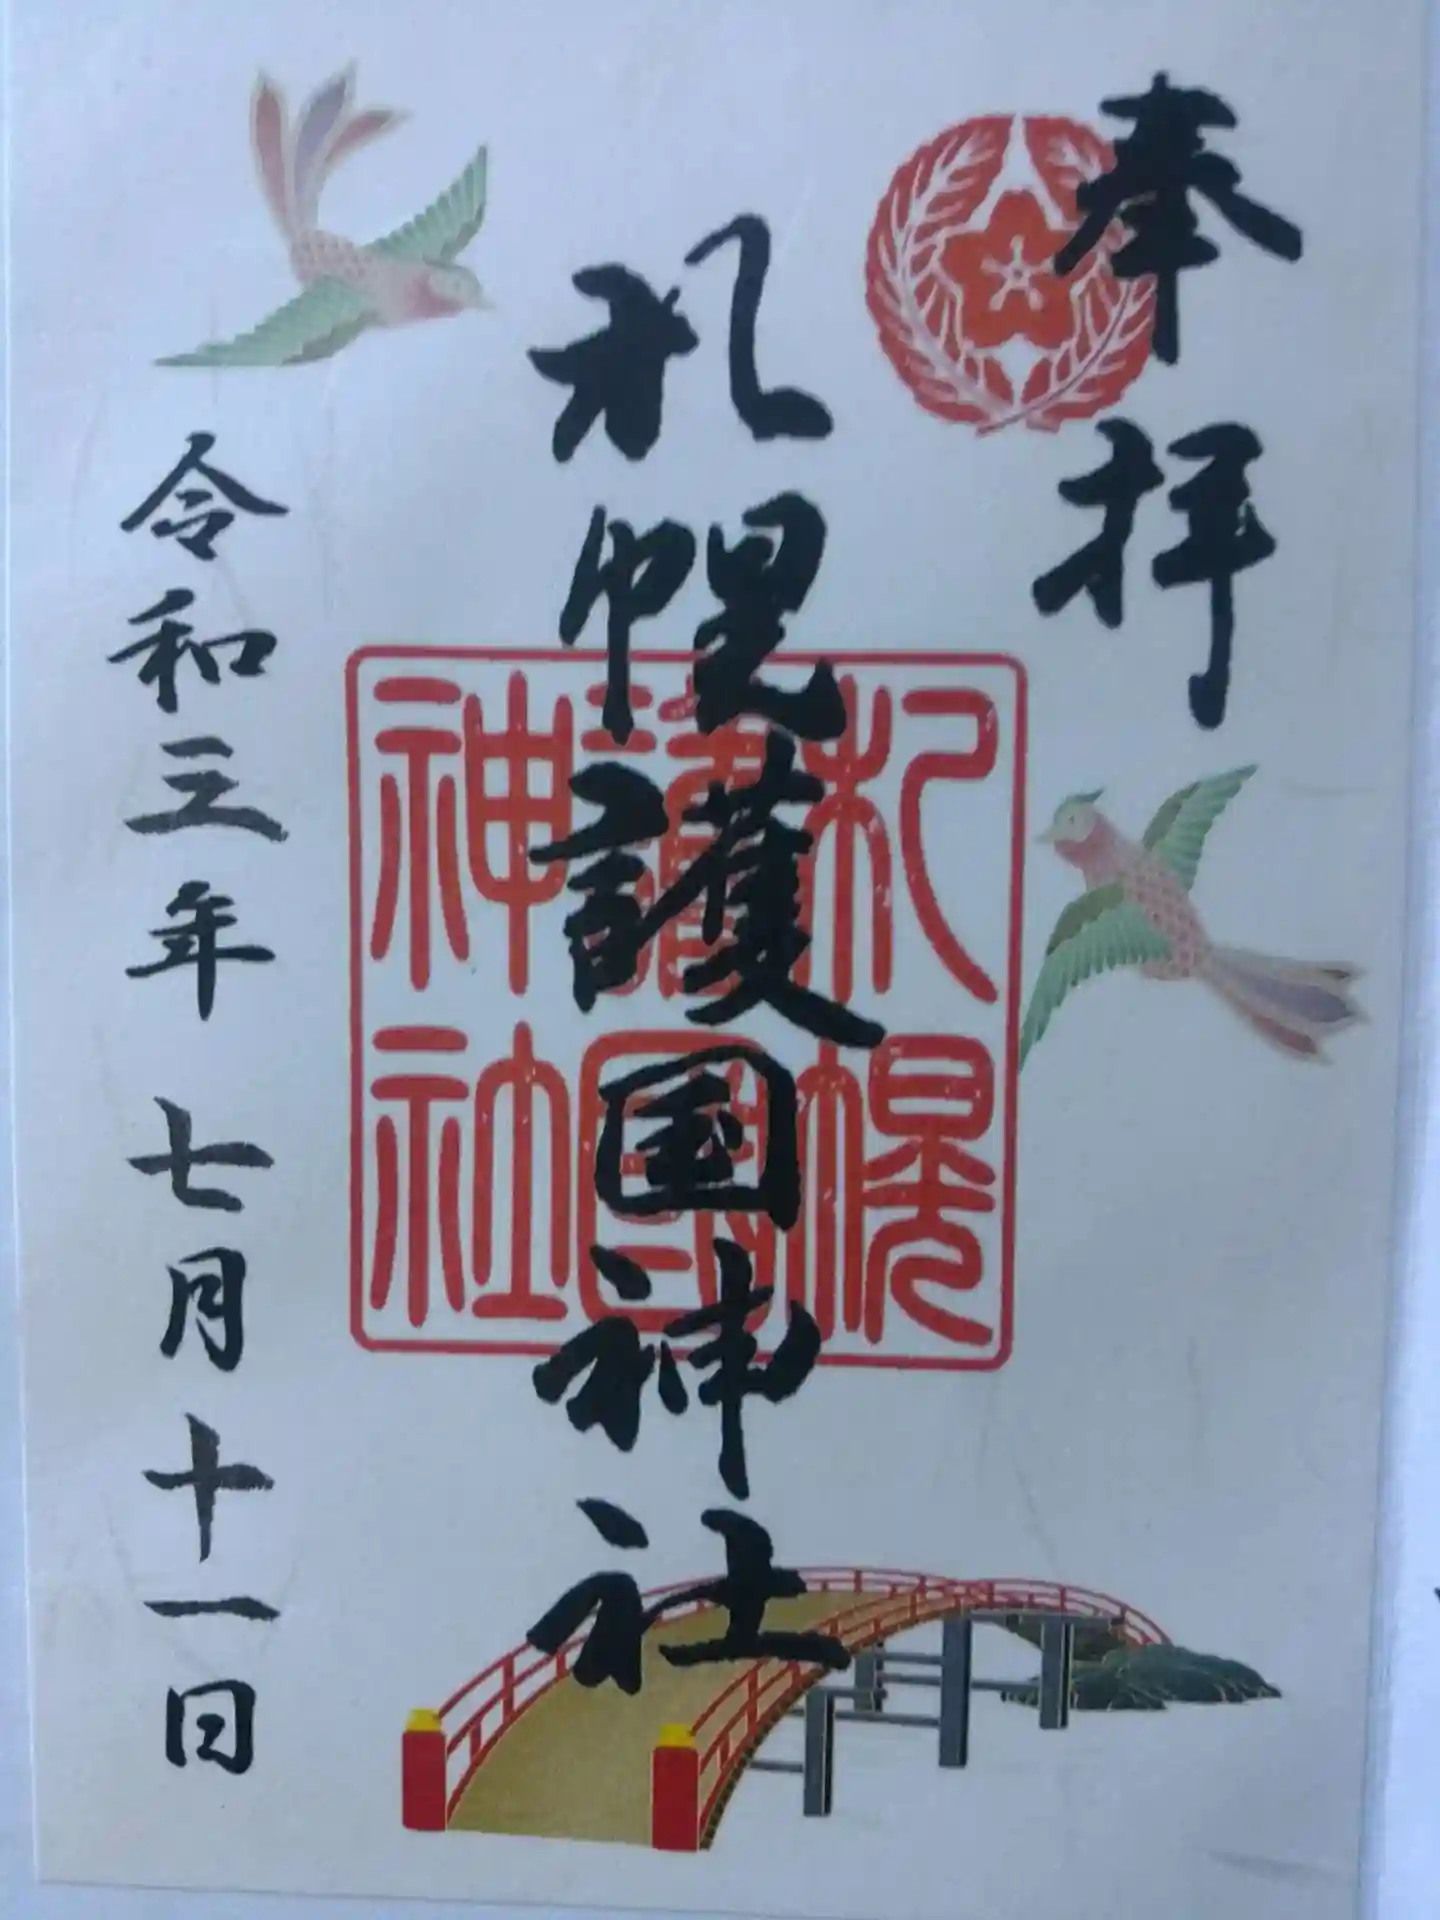 奉拝
札幌護国神社
札幌
護國
神社
令和三年 七月十一日